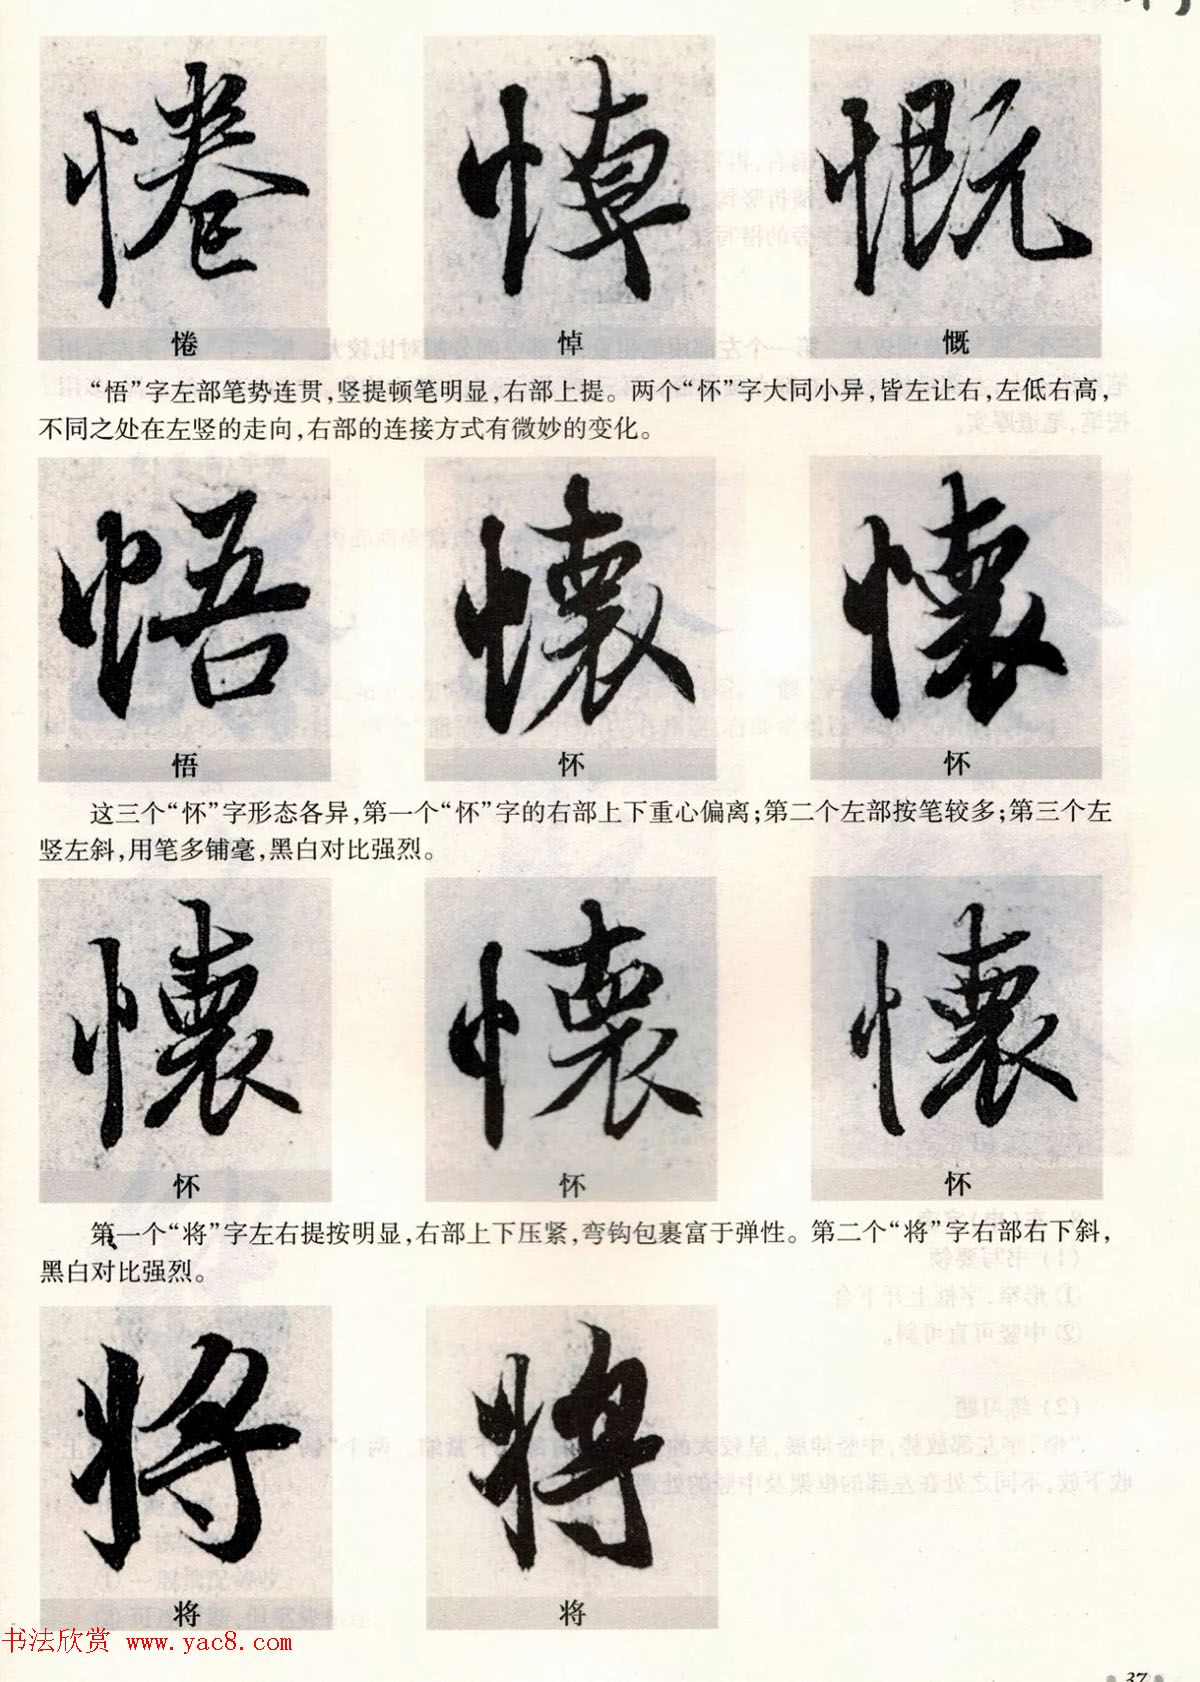 惓 悼 慨
惓 悼 慨
“悟”字左部笔势连贯,竖提顿笔明显,右部上提。两个“怀”字大同小异,皆左让右,左低右高,
不同之处在左竖的走向,右部的连接方式有微妙的变化。
悟 懷 懷
悟 怀 怀
这三个“怀”字形态各异,第一个“怀”字的右部上下重心偏离;第二个左部按笔较多;第三个左
竖左斜,用笔多铺毫,黑白对比强烈。
懷 懷 懷
怀 怀 怀
第一个“将”字左右提按明显,右部上下压紧,弯钩包裹富于弹性。第二个“将”字右部右下斜,
黑白对比强烈。
将 将
将 将
书法欣赏 www.yac8.com
37